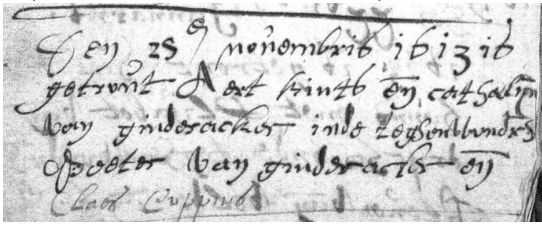 Den 25 novembris 1613 is
getrout Aert kints en̄ cathalÿn
van ginderacker inde teghenwoordich
Peeter van ginderacker en̄
Claes Coppens